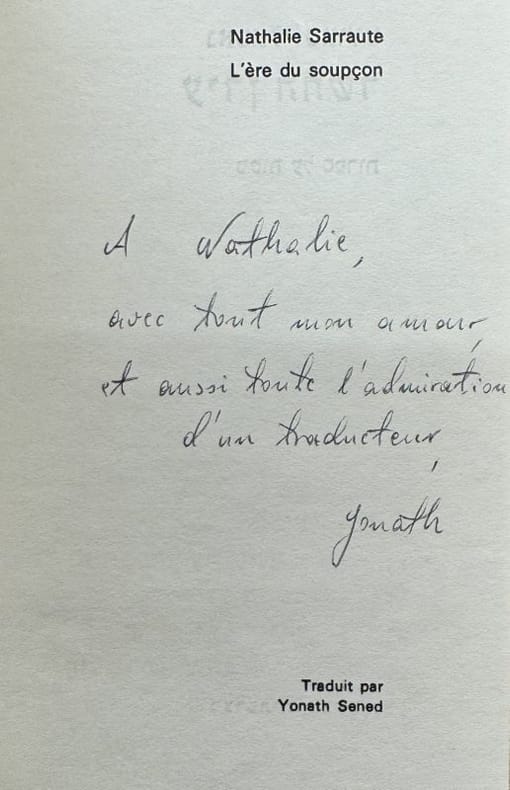 Nathalie Sarraute
L'ère du soupçon
A Nathalie,
avec tout mon amour,
et aussi toute l'admiration
d'un traducteur,
Yonath
Traduit par
Yonath Sened